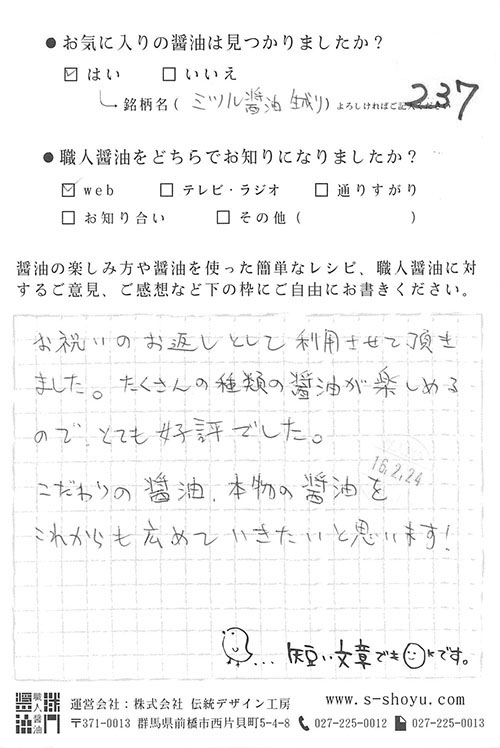 ●お気に入りの醤油は見つかりましたか？
☑はい □いいえ
銘柄名（ミツル醤油 生成り）よろしければご記入ください
237
●職人醤油をどちらでお知りになりましたか？
☑web □テレビ・ラジオ □通りすがり
□お知り合い □その他（ ）
醤油の楽しみ方や醤油を使った簡単なレシピ、職人醤油に対
するご意見、ご感想など下の枠にご自由にお書きください。
お祝いのお返しとして利用させて頂き
ました。たくさんの種類の醤油が楽しめる
ので、とても好評でした。
16.2.24
こだわりの醤油、本物の醤油を
これからも広めていきたいと思います！
...短い文章でもOKです。
職人醤油
運営会社：株式会社 伝統デザイン工房 www.s-shoyu.com
〒371-0013 群馬県前橋市西片貝町5-4-8 027-225-0012 027-225-0013